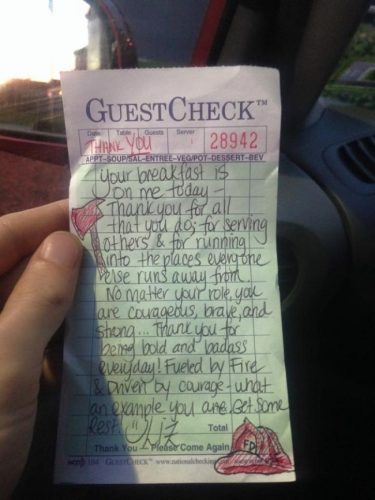 GUESTCHECK™
Date Table Guests Server
THANK YOU 28942
APPT-SOUP/SAL-ENTREE-VEG/POT-DESSERT-BEV
your breakfast is
on me today -
Thank you for all
that you do; for serving
others & for running
into the places everyone
else runs away from.
No matter your role, you
are courageous, brave, and
strong... Thank you for
being bold and badass
everyday! Fueled by Fire
& Driven by courage - what
an example you are. Get some
Rest. Liz
Total
FD
Thank You — Please Come Again
GUESTCHECK™